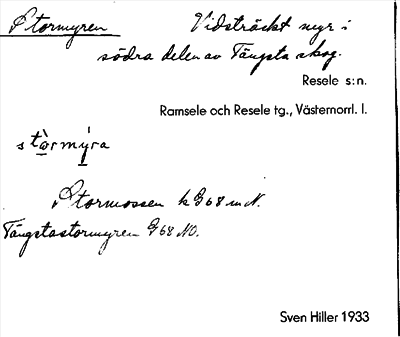 Stormyren Vidsträckt myr i
södra delen av Tängsta skog.
Resele s:n.
Ramsele och Resele tg., Västernorrl. l.
stòrmýra
Stormossen k G68 m N.
Tängstastormyren G68 NO.
Sven Hiller 1933